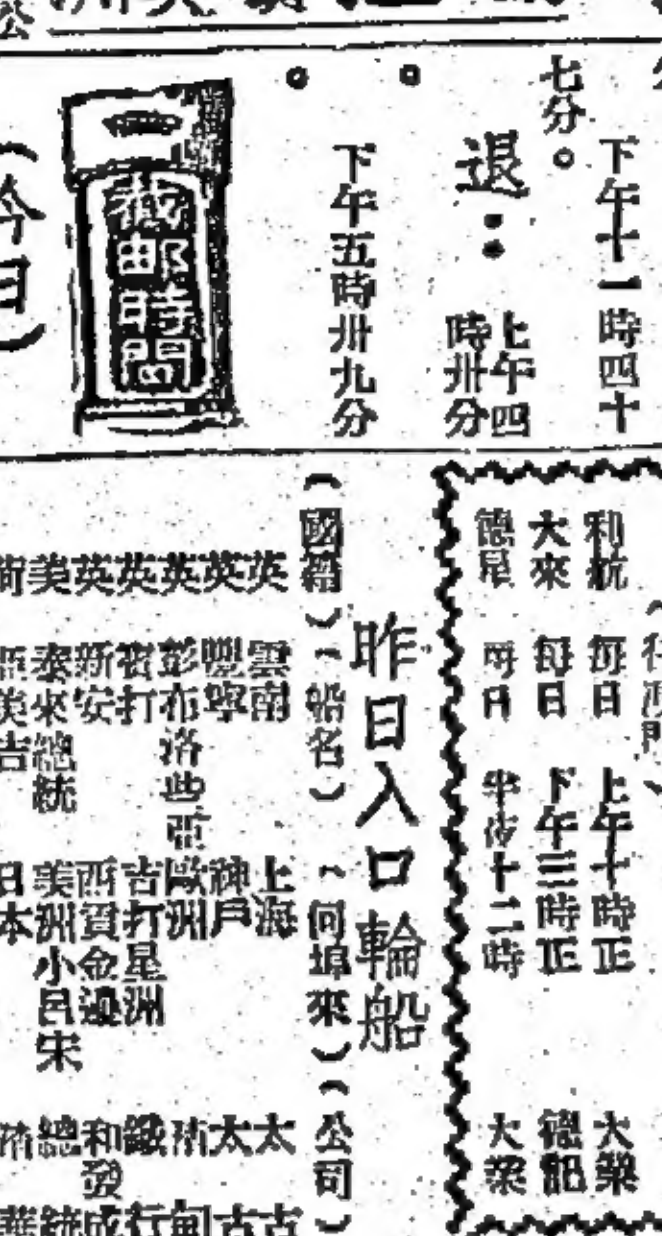 下午十一時四十
七分。
退：
上午四
時卅分
。
下午五時卅九分
。
截郵時間
（今日）
利航 每日 上午十時正 大樂
大來 每日 下午三時正 德記
德星 每日 半夜十二時 大眾
昨日入口輪船
（國籍）（船名）（何埠來）（公司）
英 雲南 上海 太古
英 神戶 太古
英 彭布洛些亞 歐洲
英 吉打星洲 鐵行
英 新安 西貢金邊 和發成
美 泰來總統 美洲小呂宋 總統
日本